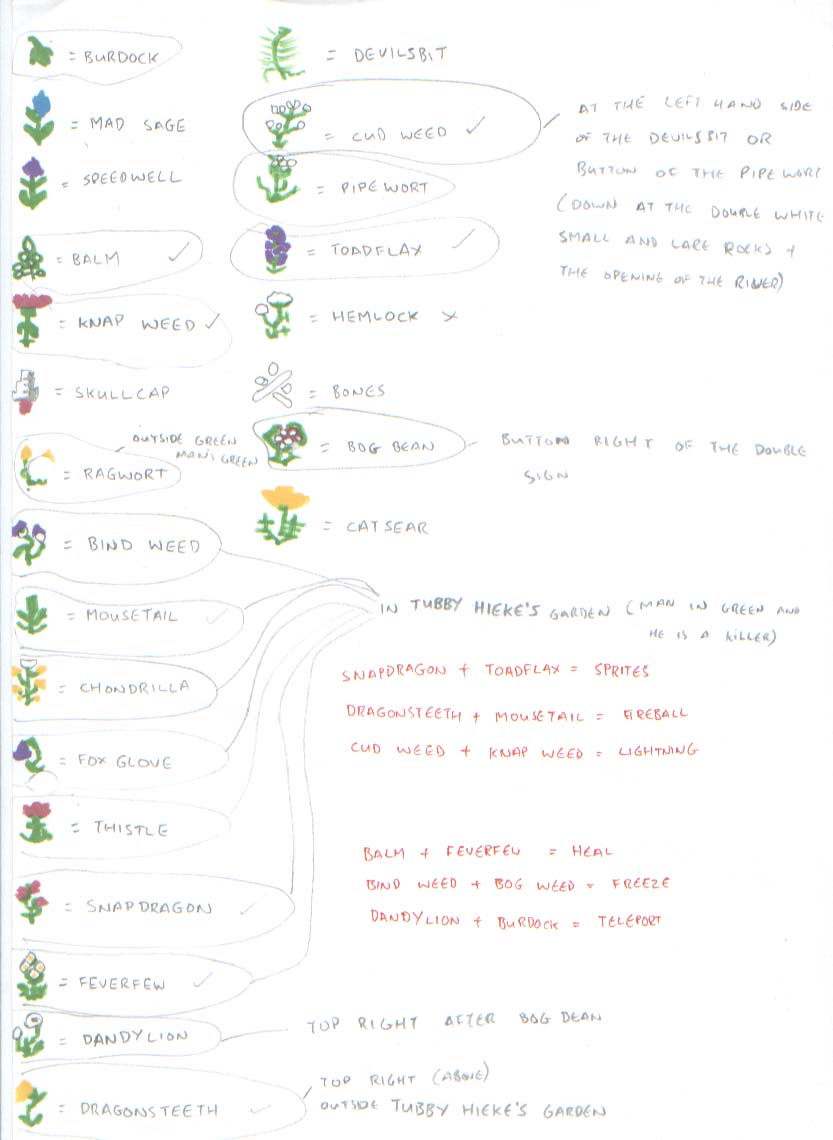 = BURDOCK
= MAD SAGE
= SPEEDWELL
= BALM ✓
= KNAP WEED ✓
= SKULLCAP
OUTSIDE GREEN
MAN'S GREEN
= RAGWORT
= BIND WEED
= MOUSETAIL ✓
= CHONDRILLA
= FOX GLOVE
= THISTLE
= SNAPDRAGON ✓
= FEVERFEW ✓
= DANDYLION
= DRAGONSTEETH ✓
= DEVILSBIT
= CUD WEED ✓
= PIPE WORT
= TOADFLAX ✓
= HEMLOCK X
= BONES
= BOG BEAN
= CATSEAR
AT THE LEFT HAND SIDE
OF THE DEVILSBIT OR
BUTTON OF THE PIPE WORT
(DOWN AT THE DOUBLE WHITE
SMALL AND LARE ROCKS +
THE OPENING OF THE RIVER)
BUTTON RIGHT OF THE DOUBLE
SIGN
IN TUBBY HIEKE'S GARDEN (MAN IN GREEN AND
HE IS A KILLER)
SNAPDRAGON + TOADFLAX = SPRITES
DRAGONSTEETH + MOUSETAIL = FIREBALL
CUD WEED + KNAP WEED = LIGHTNING
BALM + FEVERFEW = HEAL
BIND WEED + BOG WEED = FREEZE
DANDYLION + BURDOCK = TELEPORT
TOP RIGHT AFTER BOG BEAN
TOP RIGHT (ABOVE)
OUTSIDE TUBBY HIEKE'S GARDEN